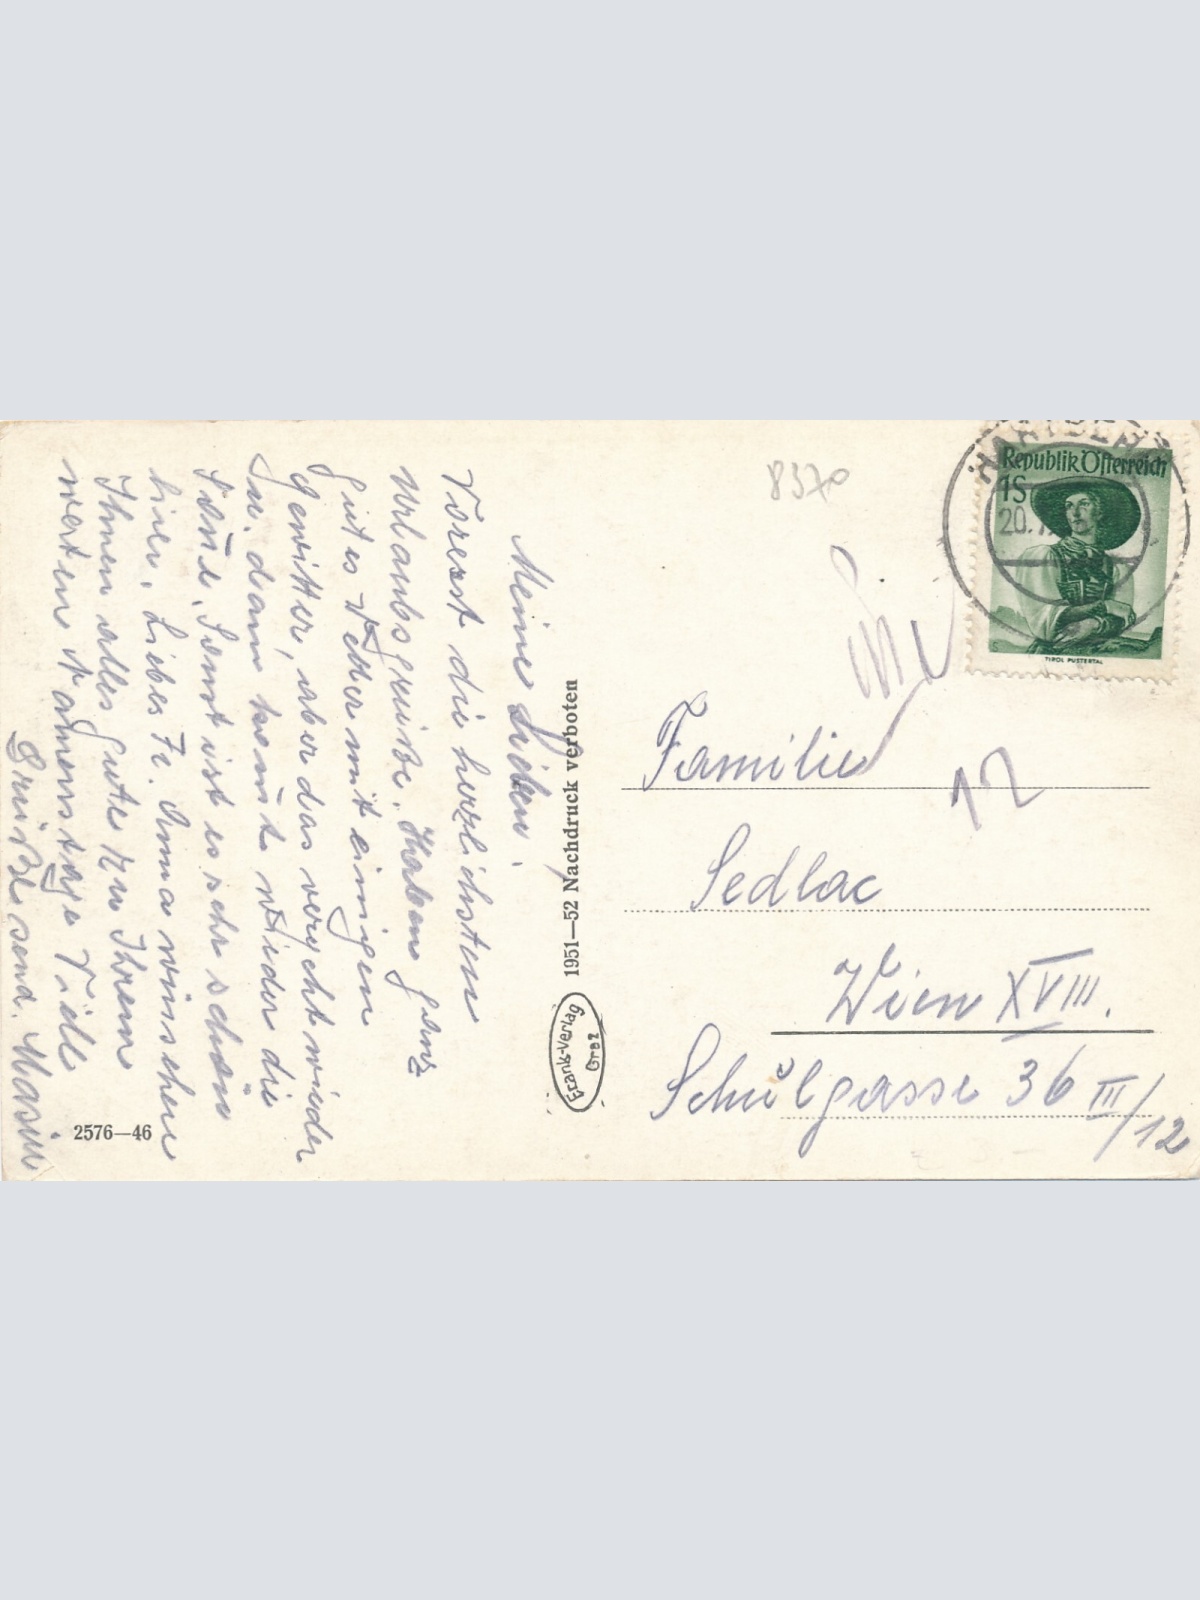 Meine Lieben.
Vorerst die herzlichsten
Urlaubsgrüße. Haben ganz
gutes Wetter mit einigen
Gewitter, aber das vergeht wieder
u. dann kom̄t wieder die
Son̄e, Sonst ist es sehr schön
hier. Liebe Fr. Anna wünschen
Ihnen alles gute zu Ihrem
werten Namenstage Viele
Grüße send.
2576—46
1951—52 Nachdruck verboten
Frank-Verlag
Graz
8370
Republik Österreich
1S
20.
TIROL PUSTERTAL
Familie
12
Sedlac
Wien XVIII.
Schulgasse 36 III/12